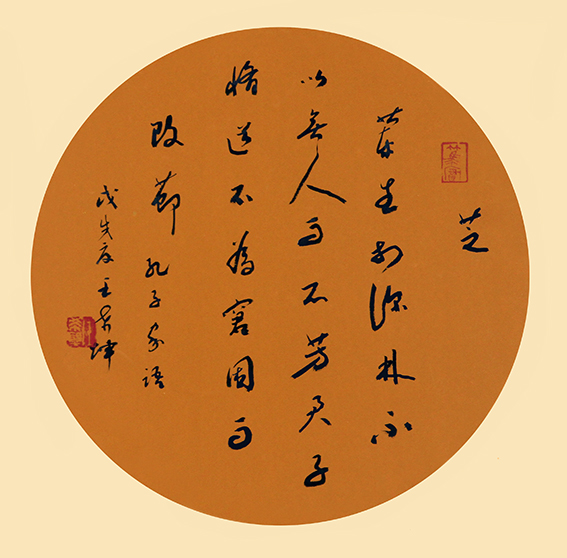 芝
蘭生於深林不
以無人而不芳君子
脩道不為窮困而
改節 孔子家語
戊戌夏王坤